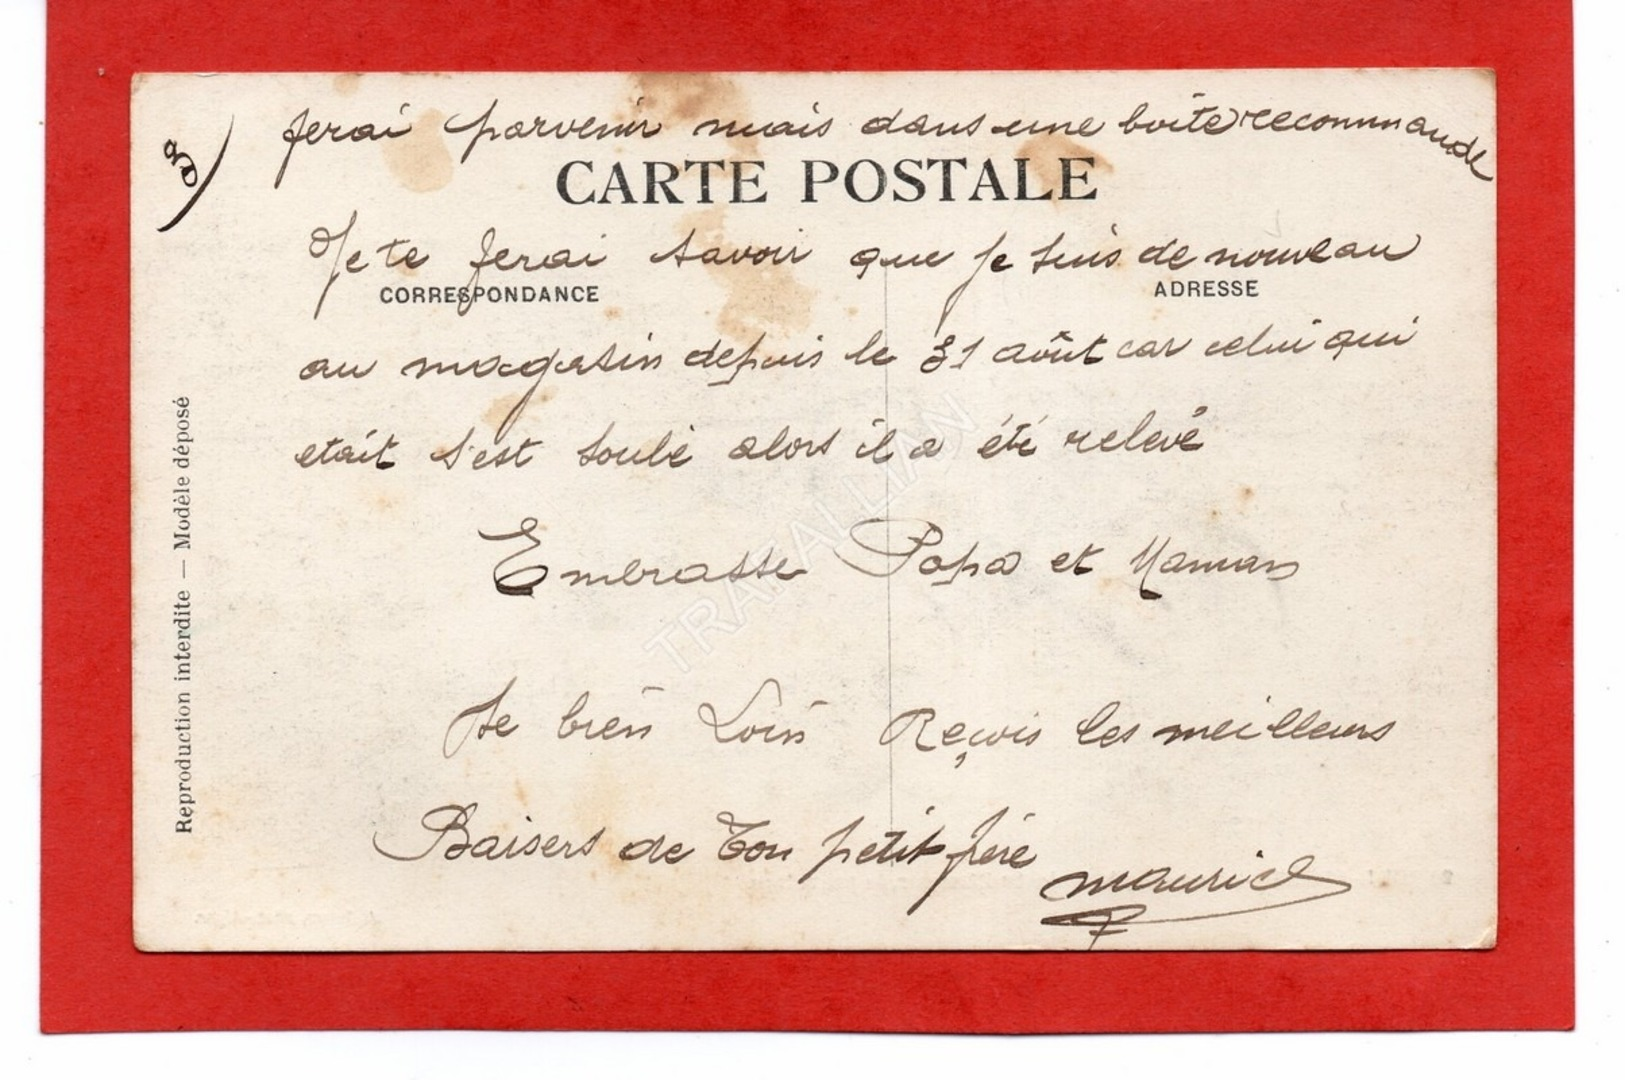 3)
ferai parvenir mais dans une boîte recommandé
CARTE POSTALE
Je te ferai savoir que je suis de nouveau
CORRESPONDANCE
ADRESSE
au magasin depuis le 31 août car celui qui
etait s'est soulé alors il a été relevé
Embrasse Papa et Maman
de bien Loin Reçois les meilleurs
Baisers de Ton petit frère
Maurice
Reproduction interdite — Modèle déposé
TRAFALLIAN